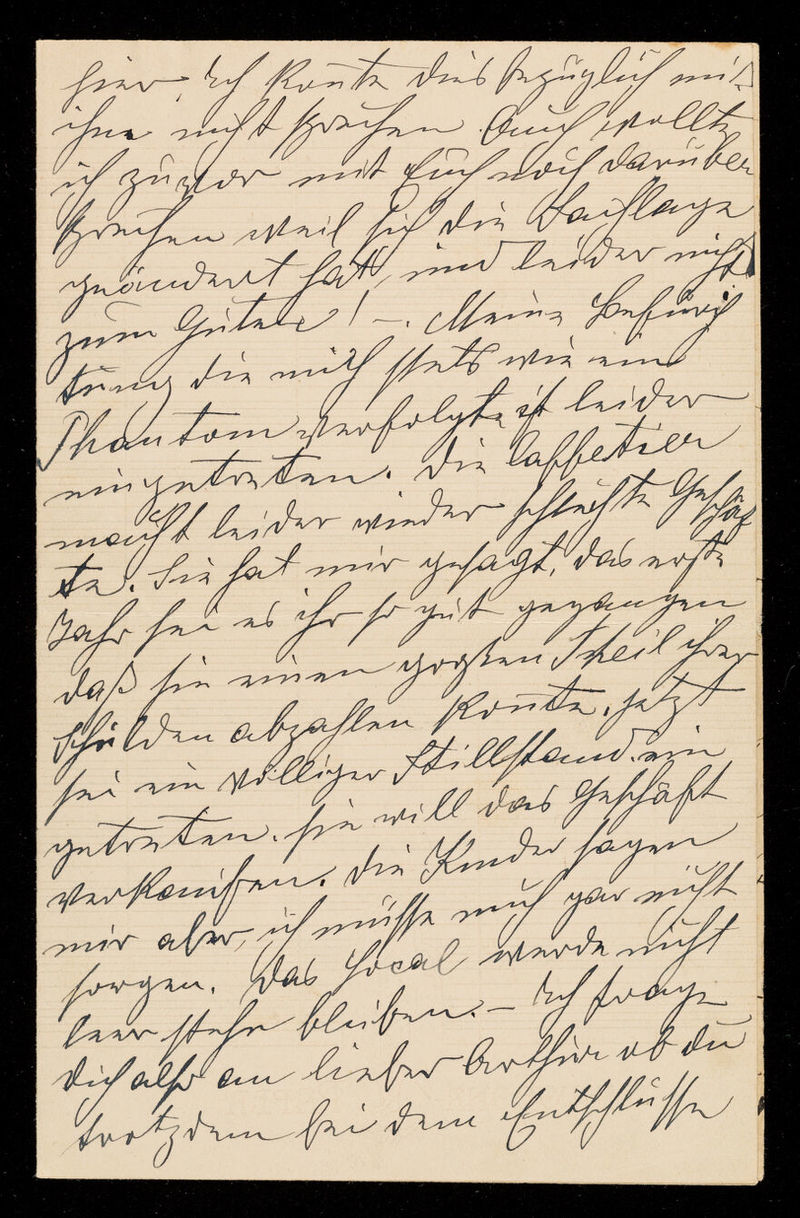 hier, Ich konnte diesbezüglich mit
ihm nicht sprechen. Auch wollte
ich zuvor mit Euch noch darüber
sprechen weil sich die Sachlage
geändert hat, und leider nicht
zum Guten! –. Meine Befürch
tung die mich stets wie ein
Phantom verfolgte ist leider
eingetreten. Die Caffetier
macht leider wieder schlechte Geschäf
te. Sie hat mir gesagt, das erste
Jahr sei es ihr so gut gegangen
daß sie einen großen Theil ihrer
Schulden abzahlen konnte. jetzt
sei ein völliger Stillstand ein
getreten. sie will das Geschäft
verkaufen. Die Kinder sagen
mir aber, ich müsse mich gar nicht
sorgen. Das Local werde nicht
leer stehn bleiben. – Ich frage
Dich also an lieber Arthur ob du
trotzdem bei dem Entschlusse